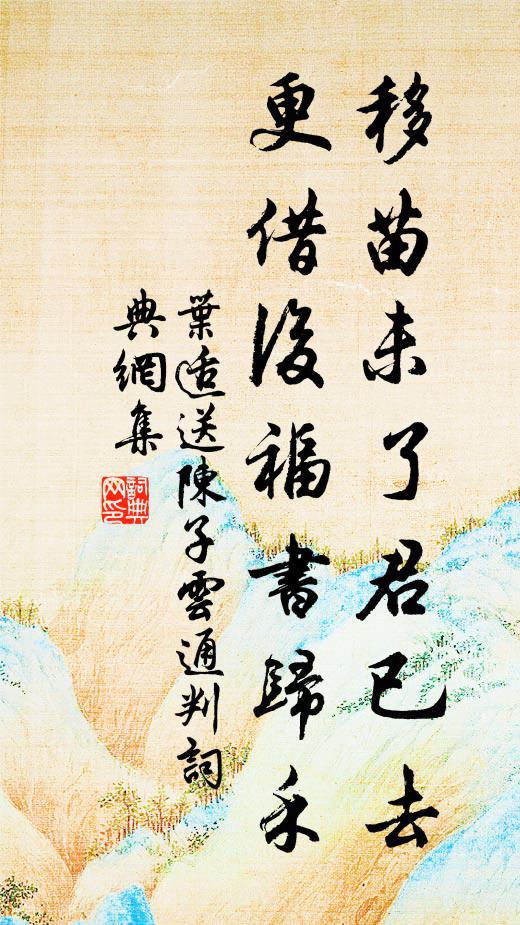 移苗未了君已去
更借後福書歸禾
葉適送陳子雲通判詞
典網集
詞典
網印